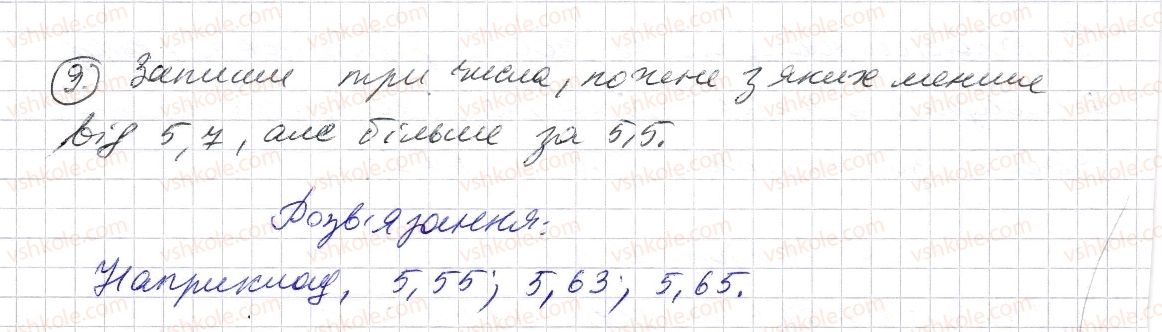 9. Запиши три числа, кожне з яких менше
від 5,7, але більше за 5,5.
Розв'язання:
Наприклад, 5,55; 5,63; 5,65.